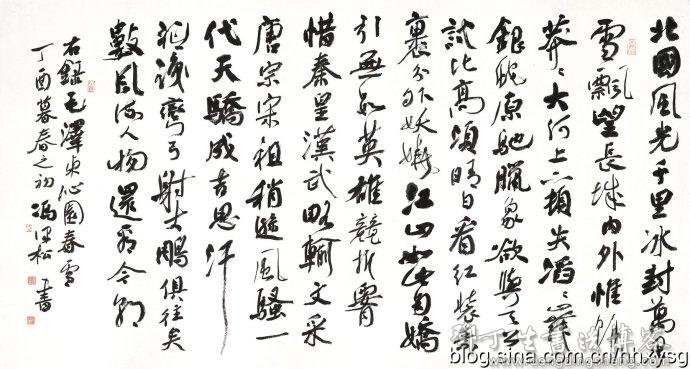 北國風光千里冰封萬里
雪飄望長城內外惟餘
莽〻大河上下頓失滔〻山舞
銀蛇原馳臘象欲與天公
試比高須晴日看紅裝素
裹分外妖嬈江山如此多嬌
引無數英雄競折腰
惜秦皇漢武略輸文采
唐宗宋祖稍遜風騷一
代天驕成吉思汗
祇識彎弓射大鵰俱往矣
數風流人物還看今朝
右錄毛澤東沁園春雪
丁酉暮春之初馮松書
丁生書法博客
blog.sina.com.cn/nhhxysg